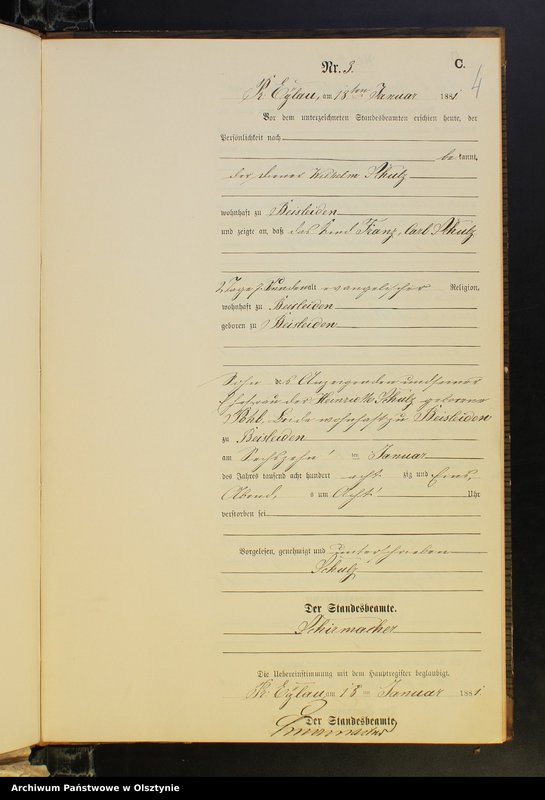 C.
Nr. 3.
4
Pr. Eylau, am 18ten Januar 1881
Vor dem unterzeichneten Standesbeamten erschien heute, der
Persönlichkeit nach
be kannt,
der Wilhelm Schulz
wohnhaft zu Beisleiden
und zeigte an, daß das Kind Franz, Carl Schulz
2 Tage alt evangelischer Religion,
wohnhaft zu Beisleiden
geboren zu Beisleiden
Sohn des Anzeigenden und seiner
Ehefrau der Henriette Schulz geborene
Pohl, beide wohnhaft zu Beisleiden
zu Beisleiden
am Sechszehn ten Januar
des Jahres tausend acht hundert acht zig und Eins,
Abends um Acht Uhr
verstorben sei
Vorgelesen, genehmigt und unterschrieben
Schulz
Der Standesbeamte.
Schirmacher
Die Uebereinstimmung mit dem Hauptregister beglaubigt.
Pr. Eylau, am 18 ten Januar 1881
Der Standesbeamte,
Archiwum Państwowe w Olsztynie